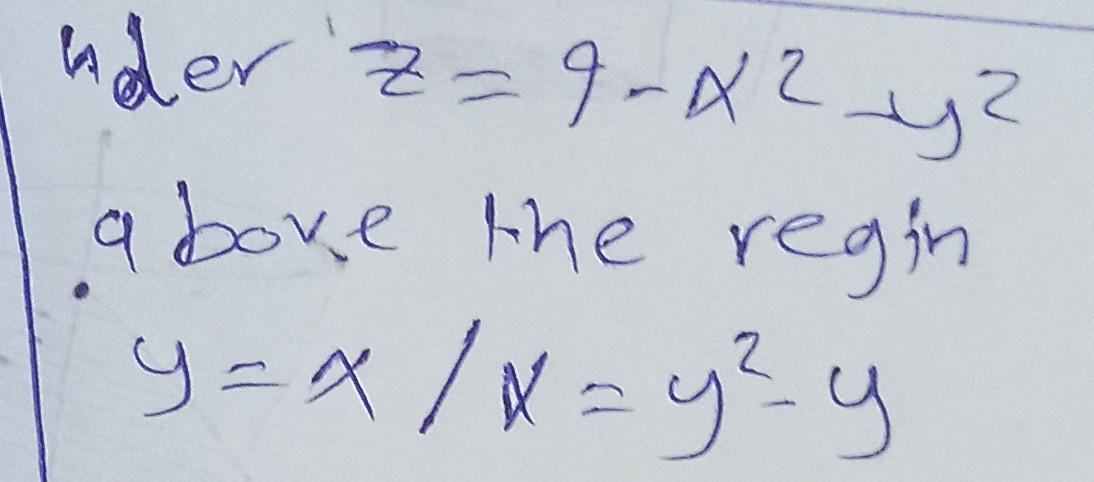 under z = 9 - x² - y²
above the regin
y = x / x = y² - y